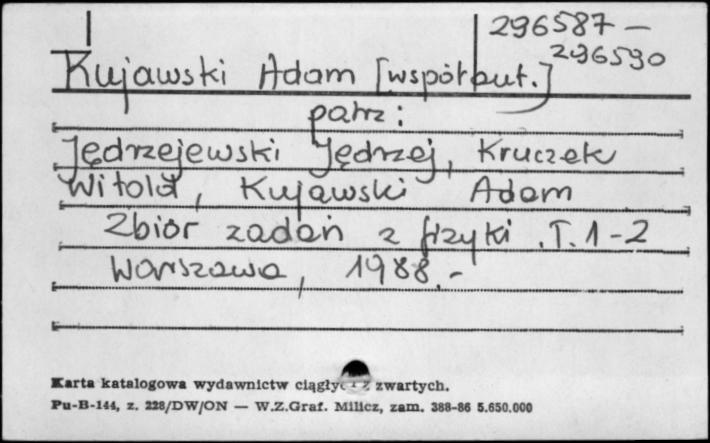 296587 –
296590
Kujawski Adam [współaut.]
patrz:
Jędrzejewski Jędrzej, Kruczek
Witold, Kujawski Adam
Zbiór zadań z fizyki. T. 1-2
Warszawa, 1988.-
Karta katalogowa wydawnictw ciągłych i z zwartych.
Pu-B-144, z. 228/DW/ON — W.Z.Graf. Milicz, zam. 388-86 5.650.000